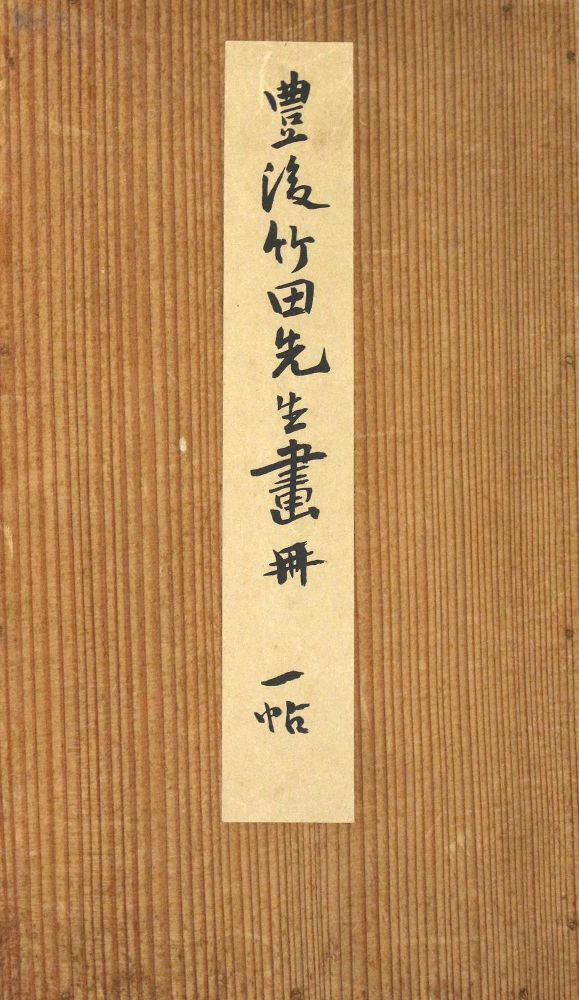 豊後竹田先生畫冊 一帖